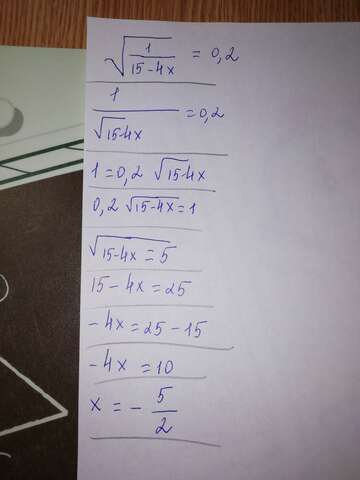 √(1/(15-4x)) = 0,2
1/(√15-4x) = 0,2
1 = 0,2 √15-4x
0,2 √(15-4x) = 1
√(15-4x) = 5
15 - 4x = 25
- 4x = 25 - 15
- 4x = 10
x = - 5/2